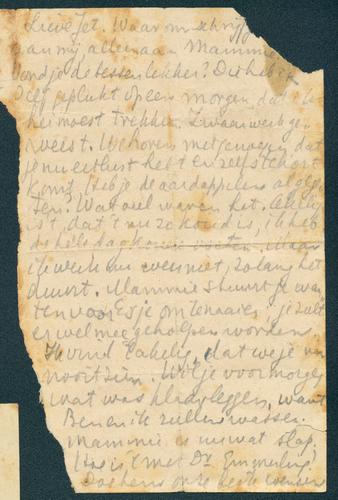 Lieve Jet. Waarom schrijf
aan mij alleen aan Mammie
Vond je de bessen lekker? Die heb ik
zelf geplukt op een morgen, dat ik
hei moest trekken. Zwaar werk ge
weest. We horen met genoegen dat
je nu eetlust hebt en zelfs te kort
komt. Heb je de aardappelen al gege
ten? Wat ovel waren het. Lekker
is 't, dat 't nu zo koud is, ik heb
de hele dag koude voeten. Maar
ik werk nu even niet, zolang het
duurt. Mammie stuurt je wa
ten voor Esje om te naaien, je zult
er wel mee geholpen worden
Ik vind 't akelig, dat we je nu
nooit zien. Wil je voor morgen
wat was klaarleggen, want
Ben en ik zullen wassen.
Mammie is nu wat slap,
Hoe is 't met Dr. Emmerling
Doe hem onze beste wensen